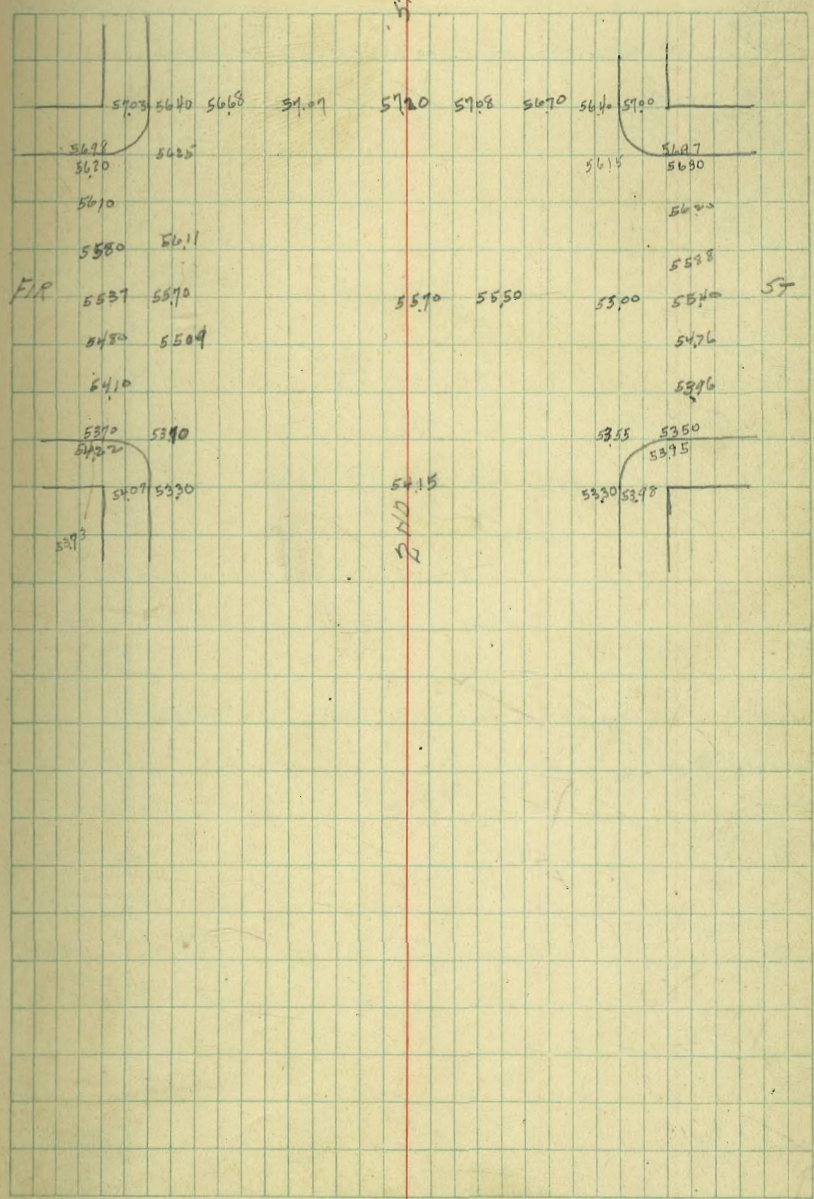 57.03 56.40 56.68 57.07 57.20 57.08 56.70 56.40 57.00
56.98 56.97
56.20 56.25 56.15 56.30
56.10
55.80 56.11 55.88
FIR 55.37 55.70 55.70 55.50 55.00 55.40 ST
54.80 55.09 54.76
54.10 53.96
53.70 53.55 53.50
53.95
54.07 53.30 54.15 53.30 53.98
53.73
2ND